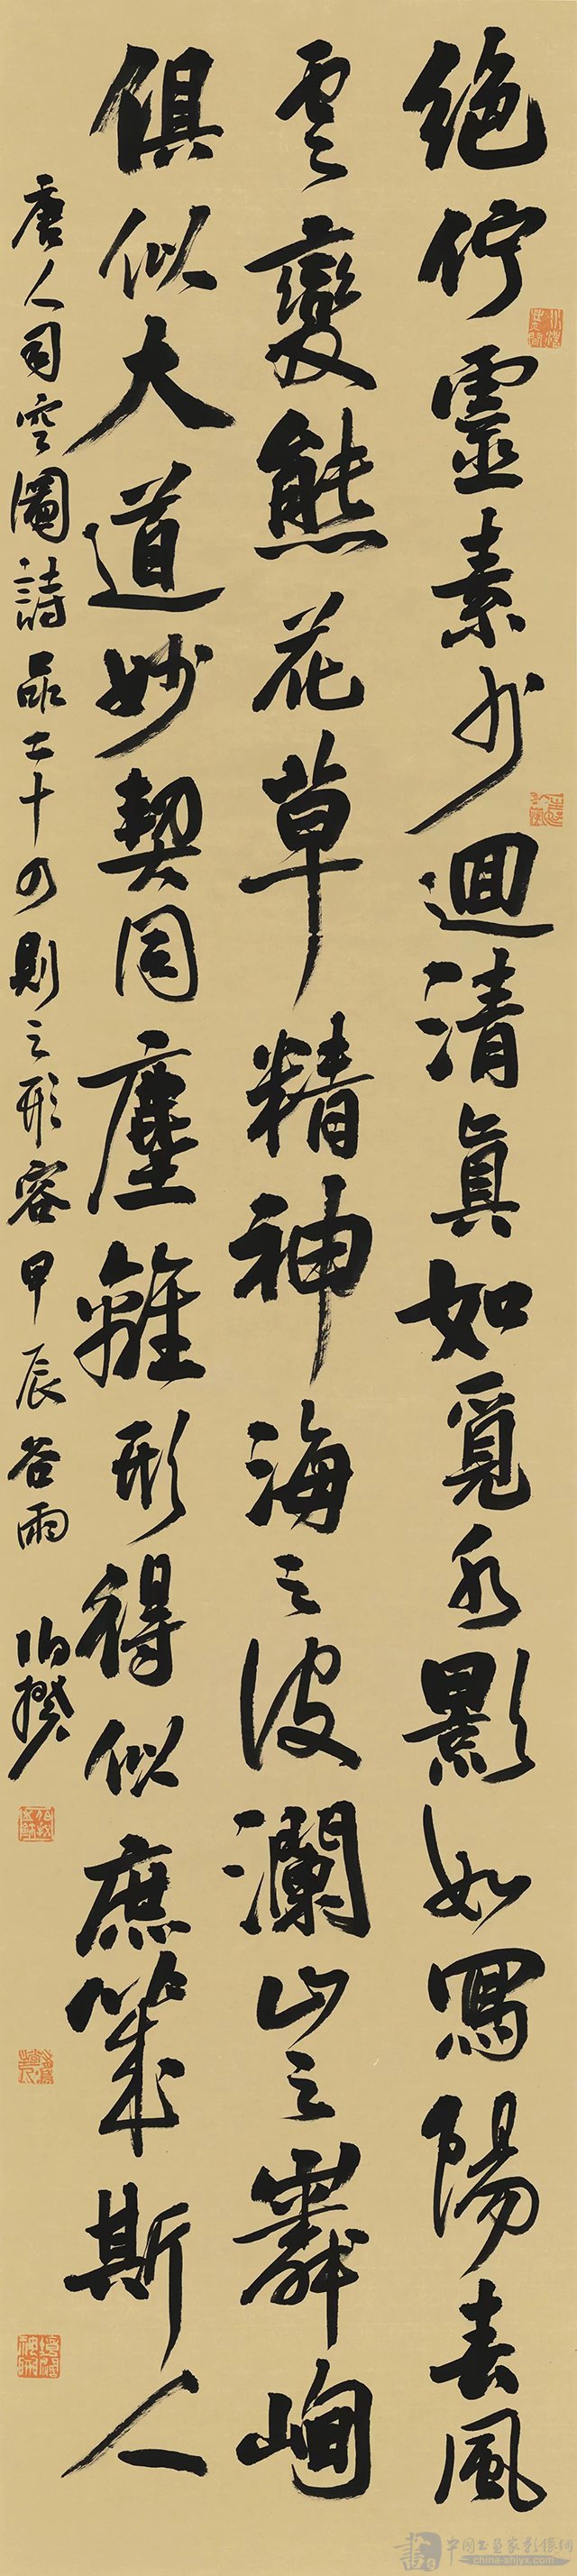 絶佇靈素少迴清真如覓水影如寫陽春風
雲變態花草精神海之波瀾山之嶙峋
俱似大道妙契同塵離形得似庶幾斯人
唐人司空圖詩品二十四則之形容甲辰谷雨 伯揆
中国书画家影像网
china-shiyx.com